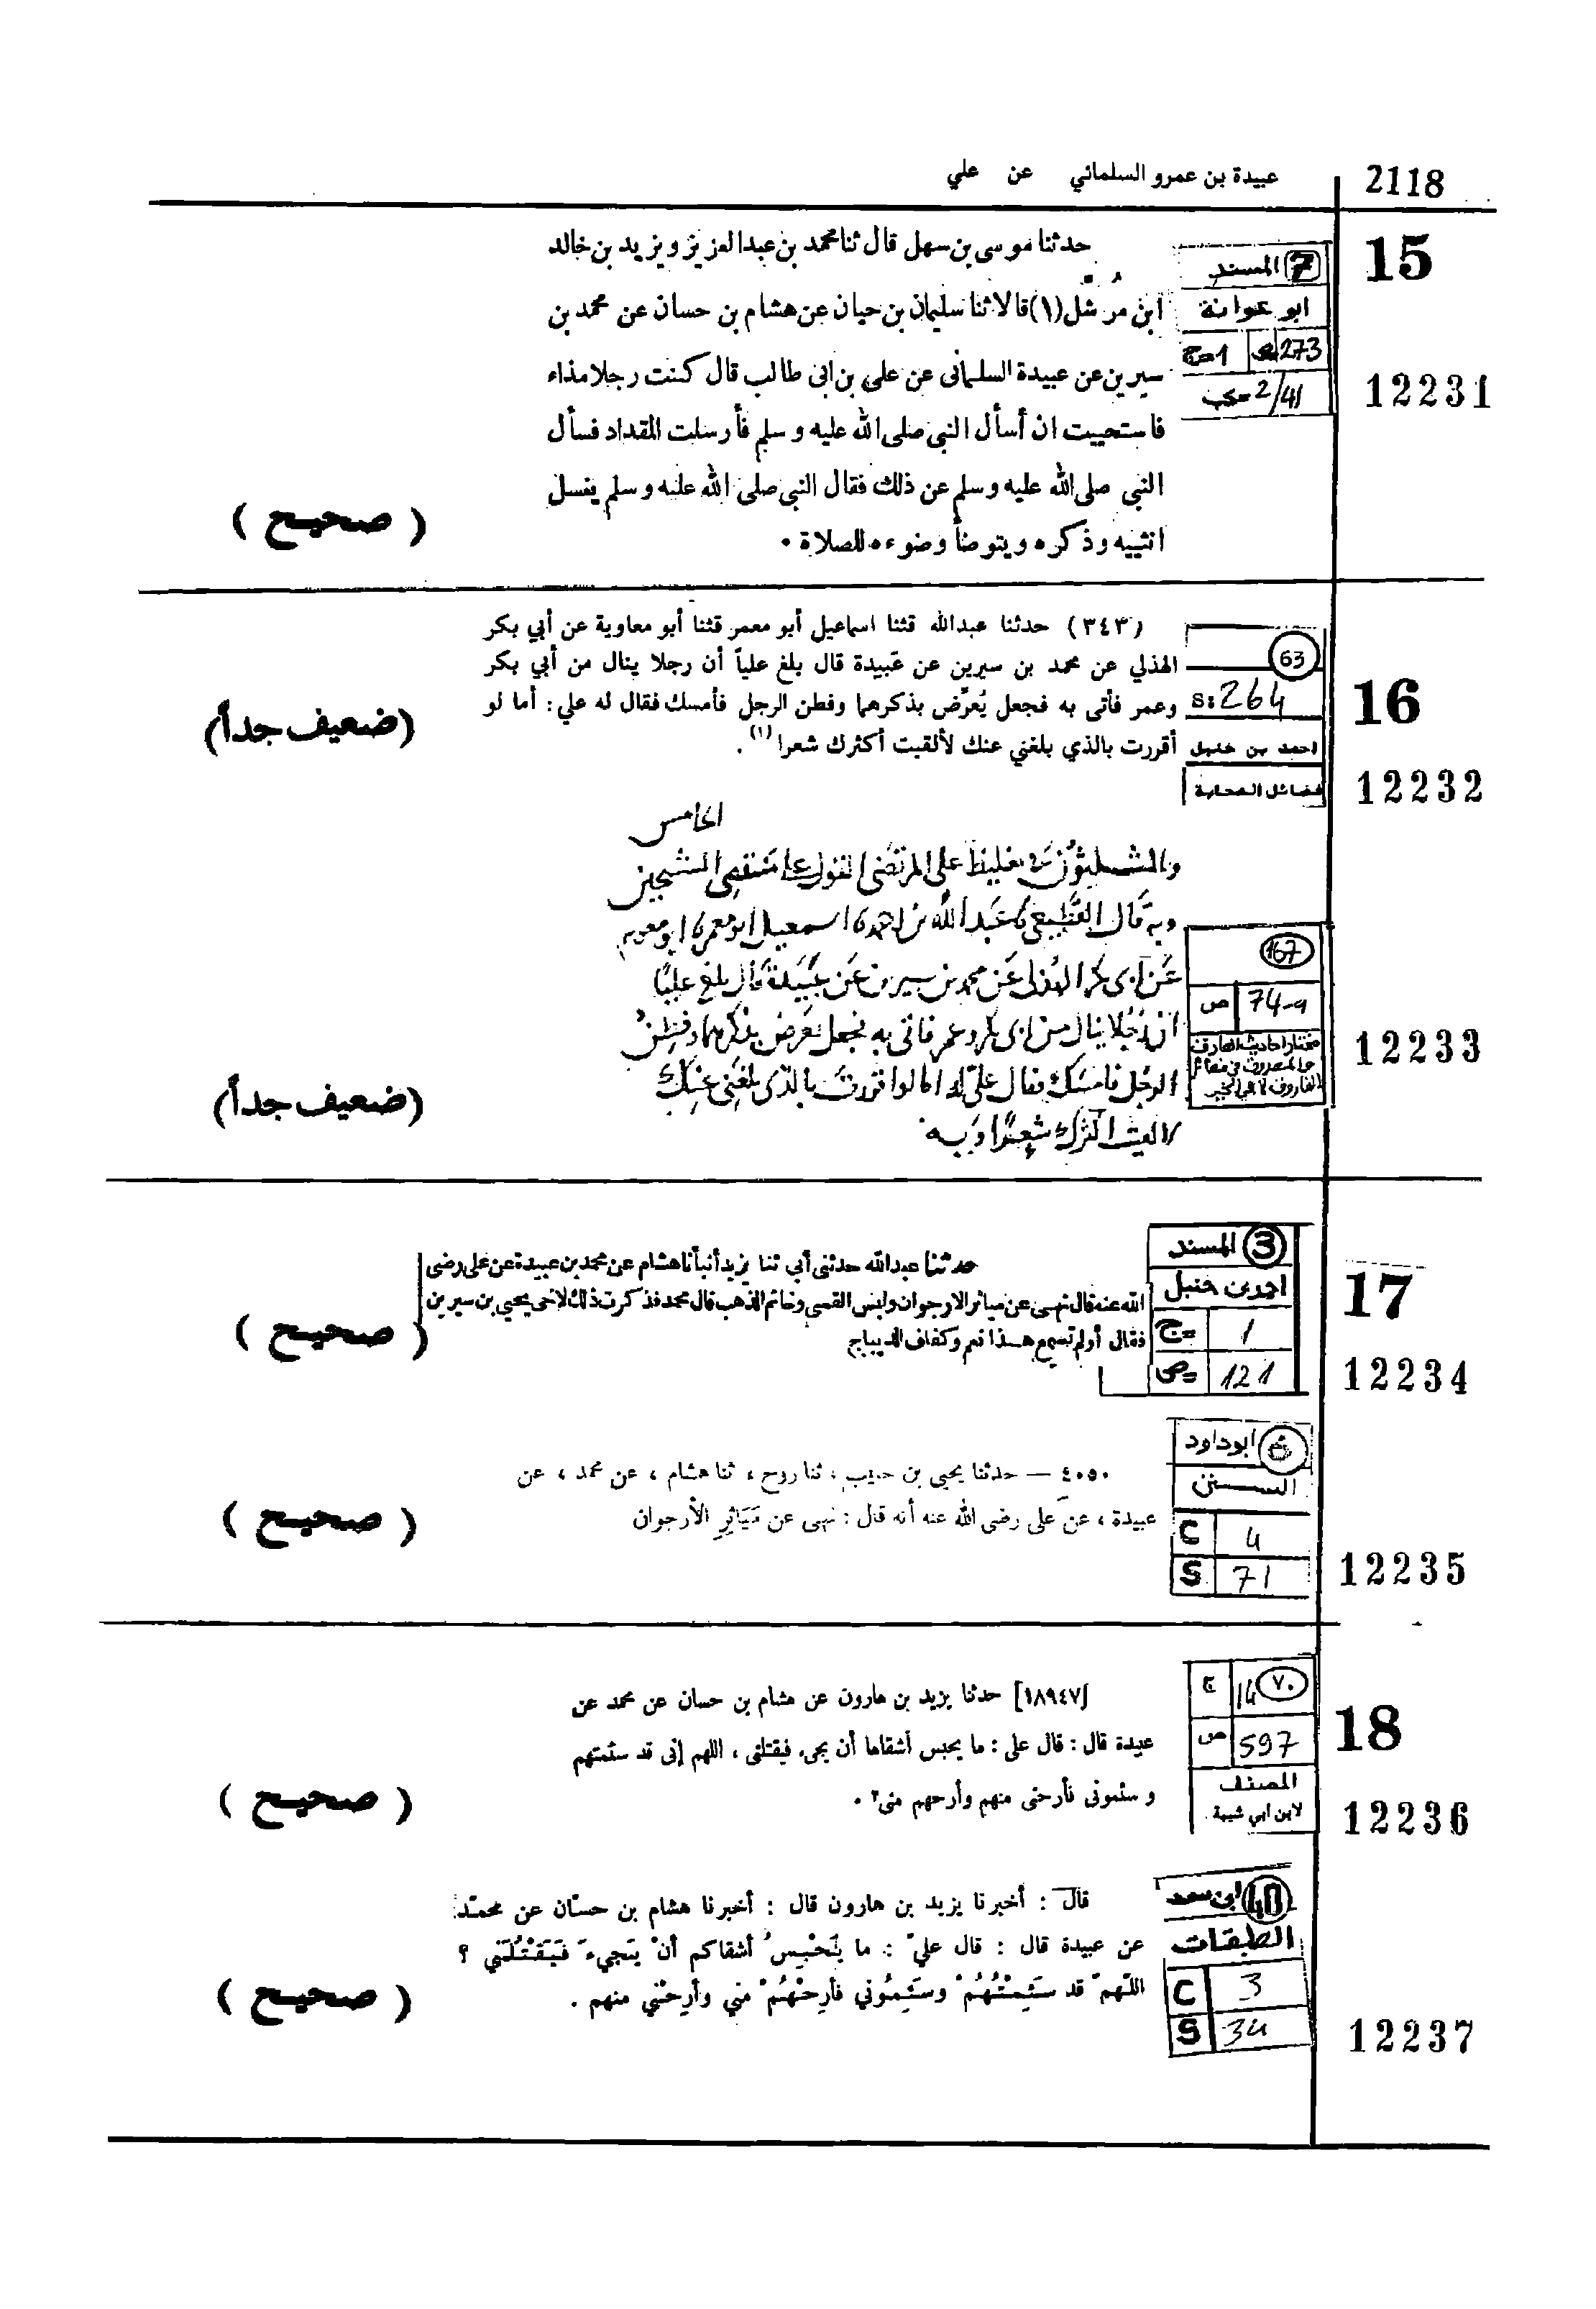 2118
عبيدة بن عمرو السلماني عن علي
15
12231
7 المسند
ابو عوانة
273 1=ج
2/41=كب
حدثنا موسى بن سهل قال ثنا محمد بن عبدالعزيز ويزيد بن خالد
ابن مُرشّل (١) قالا ثنا سليمان بن حيان عن هشام بن حسان عن محمد بن
سيرين عن عبيدة السلمانى عن على بن ابى طالب قال كنت رجلا مذاء
فاستحييت ان أسأل النبى صلى الله عليه وسلم فأرسلت المقداد فسأل
النبى صلى الله عليه وسلم عن ذلك فقال النبى صلى الله عليه وسلم يغسل
انثييه وذكره ويتوضأ وضوءه للصلاة ٠
( صحيح )
16
12232
63
S: 264
احمد بن حنبل
فضائل الصحابة
(٣٤٣) حدثنا عبدالله قثنا اسماعيل أبو معمر قثنا أبو معاوية عن أبي بكر
الهذلي عن محمد بن سيرين عن عَبيدة قال بلغ علياً أن رجلا ينال من أبي بكر
وعمر فأتى به فجعل يُعرِّض بذكرهما وفطن الرجل فأمسك فقال له علي: أما لو
أقررت بالذي بلغني عنك لألقيت أكثرك شعرا (١).
(ضعيف جداً)
12233
167
74-a ص
الخامس
والثلثون في تغليظ على المرتضى القول على منتقصى الشيخين
وبه قال القطيعي عبد الله بن احمد اسمعيل ابو معمر ابو معوية
عن ابى بكر الهذلى عن محمد بن سيرين عن عبيدة قال بلغ عليا
ان رجلا ينال من ابى بكر وعمر فاتى به فجعل يعرض بذكرهما وفطن
الرجل فامسك فقال على له اما لو اقررت بالذى بلغنى عنك
لالقيت اكثرك شعرا وبه
(ضعيف جداً)
17
12234
3 المسند
احمد بن حنبل
1 =ج
121 =ص
حدثنا عبدالله حدثنى أبي ثنا يزيد أنبأنا هشام عن محمد بن عبيدة عن على رضى
الله عنه قال نهى عن مياثر الارجوان ولبس القسى وخاتم الذهب قال محمد فذكرت ذلك لاخى يحيى بن سيرين
فقال أولم تسمع هذا نعم وكفاف الديباج
( صحيح )
12235
ابو داود
السنن
C 4
S 71
٤٠٥٠ — حدثنا يحيى بن حبيب ، ثنا روح ، ثنا هشام ، عن محمد ، عن
عبيدة ، عن على رضى الله عنه أنه قال : نهى عن مَيَاثِرِ الأرجوان
( صحيح )
18
12236
٧٠ 14 ج
597 ص
المصنف
لابن ابي شيبة
[١٨٩٤٧] حدثنا يزيد بن هارون عن هشام بن حسان عن محمد عن
عبيدة قال : قال على : ما يحبس أشقاها أن يجىء فيقتلنى ، اللهم إنى قد سئمتهم
و سئمونى فأرحنى منهم وأرحهم منى٢ ٠
( صحيح )
12237
40 ابن سعد
الطبقات
C 3
S 34
قال : أخبرنا يزيد بن هارون قال : أخبرنا هشام بن حسّان عن محمّد
عن عبيدة قال : قال عليّ : ما يَحْبِسُ أشقاكم أنْ يَجيءَ فَيَقْتُلَني ؟
اللّهمّ قد سَئِمْتُهُمْ وسَئِمُوني فأرِحْهُمْ مني وأرِحْني منهم .
( صحيح )